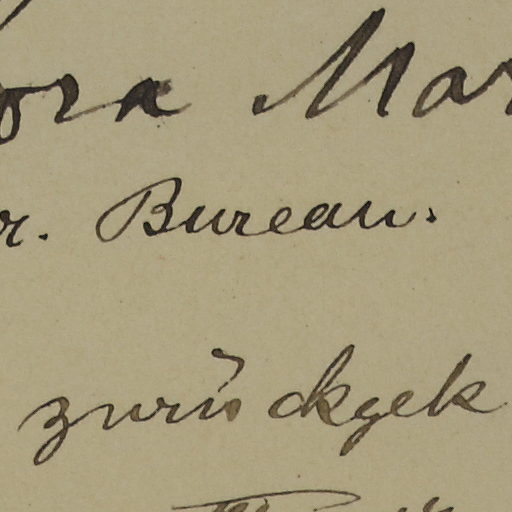 ora Mar
r. Bureau.
zurückgek